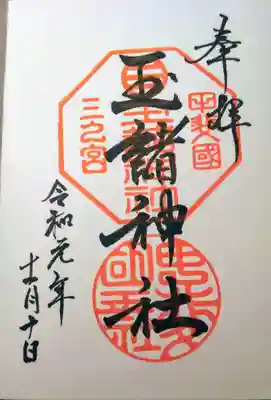 奉拝
甲斐國
三之宮
玉諸神社
令和元年
十一月十日